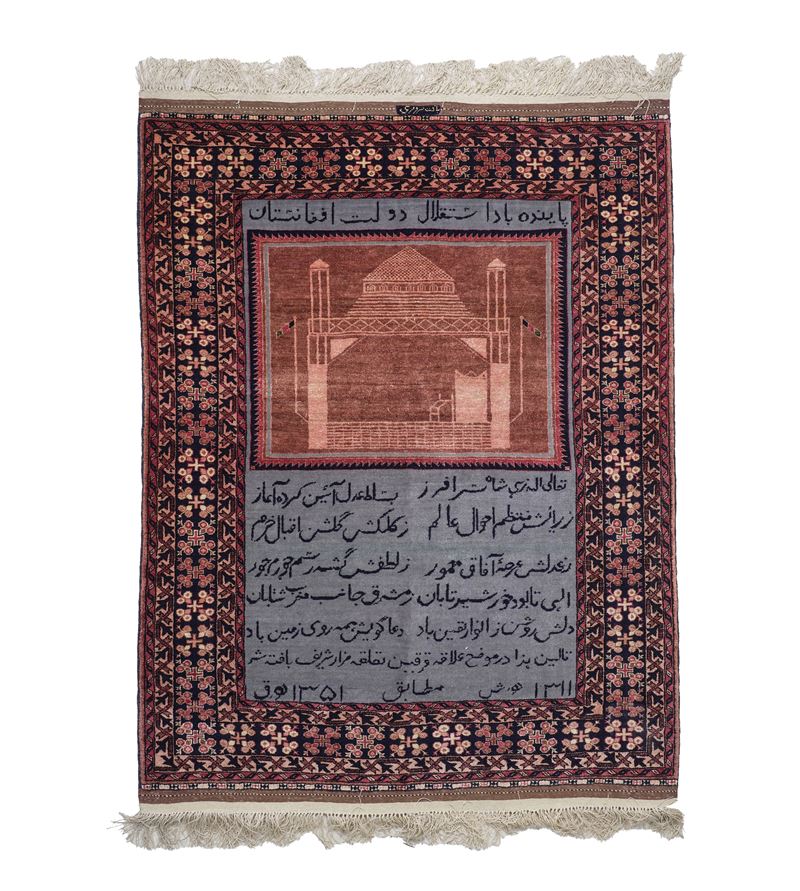 پاینده باد استقلال دولت افغانستان
تعالی الله زهی شاه سرافرز بساط عدل آئین کرده آغاز
ز رایش منتظم احوال عالم ز کلکش گلشن اقبال خرم
ز عدلش عرصهٔ آفاق معمور ز لطفش گشته رسم جور
الهی تا بود خورشید تابان ز مشرق جانب مغرب شتابان
دلش روشن ز انوار یقین باد دعاگویش همه روی زمین باد
قالین هذا در موضع علاقه قرقین تعلقه مزارشریف بافت شد
۱۳۱۱ هـ ش مطابق ۱۳۵۱ هـ ق